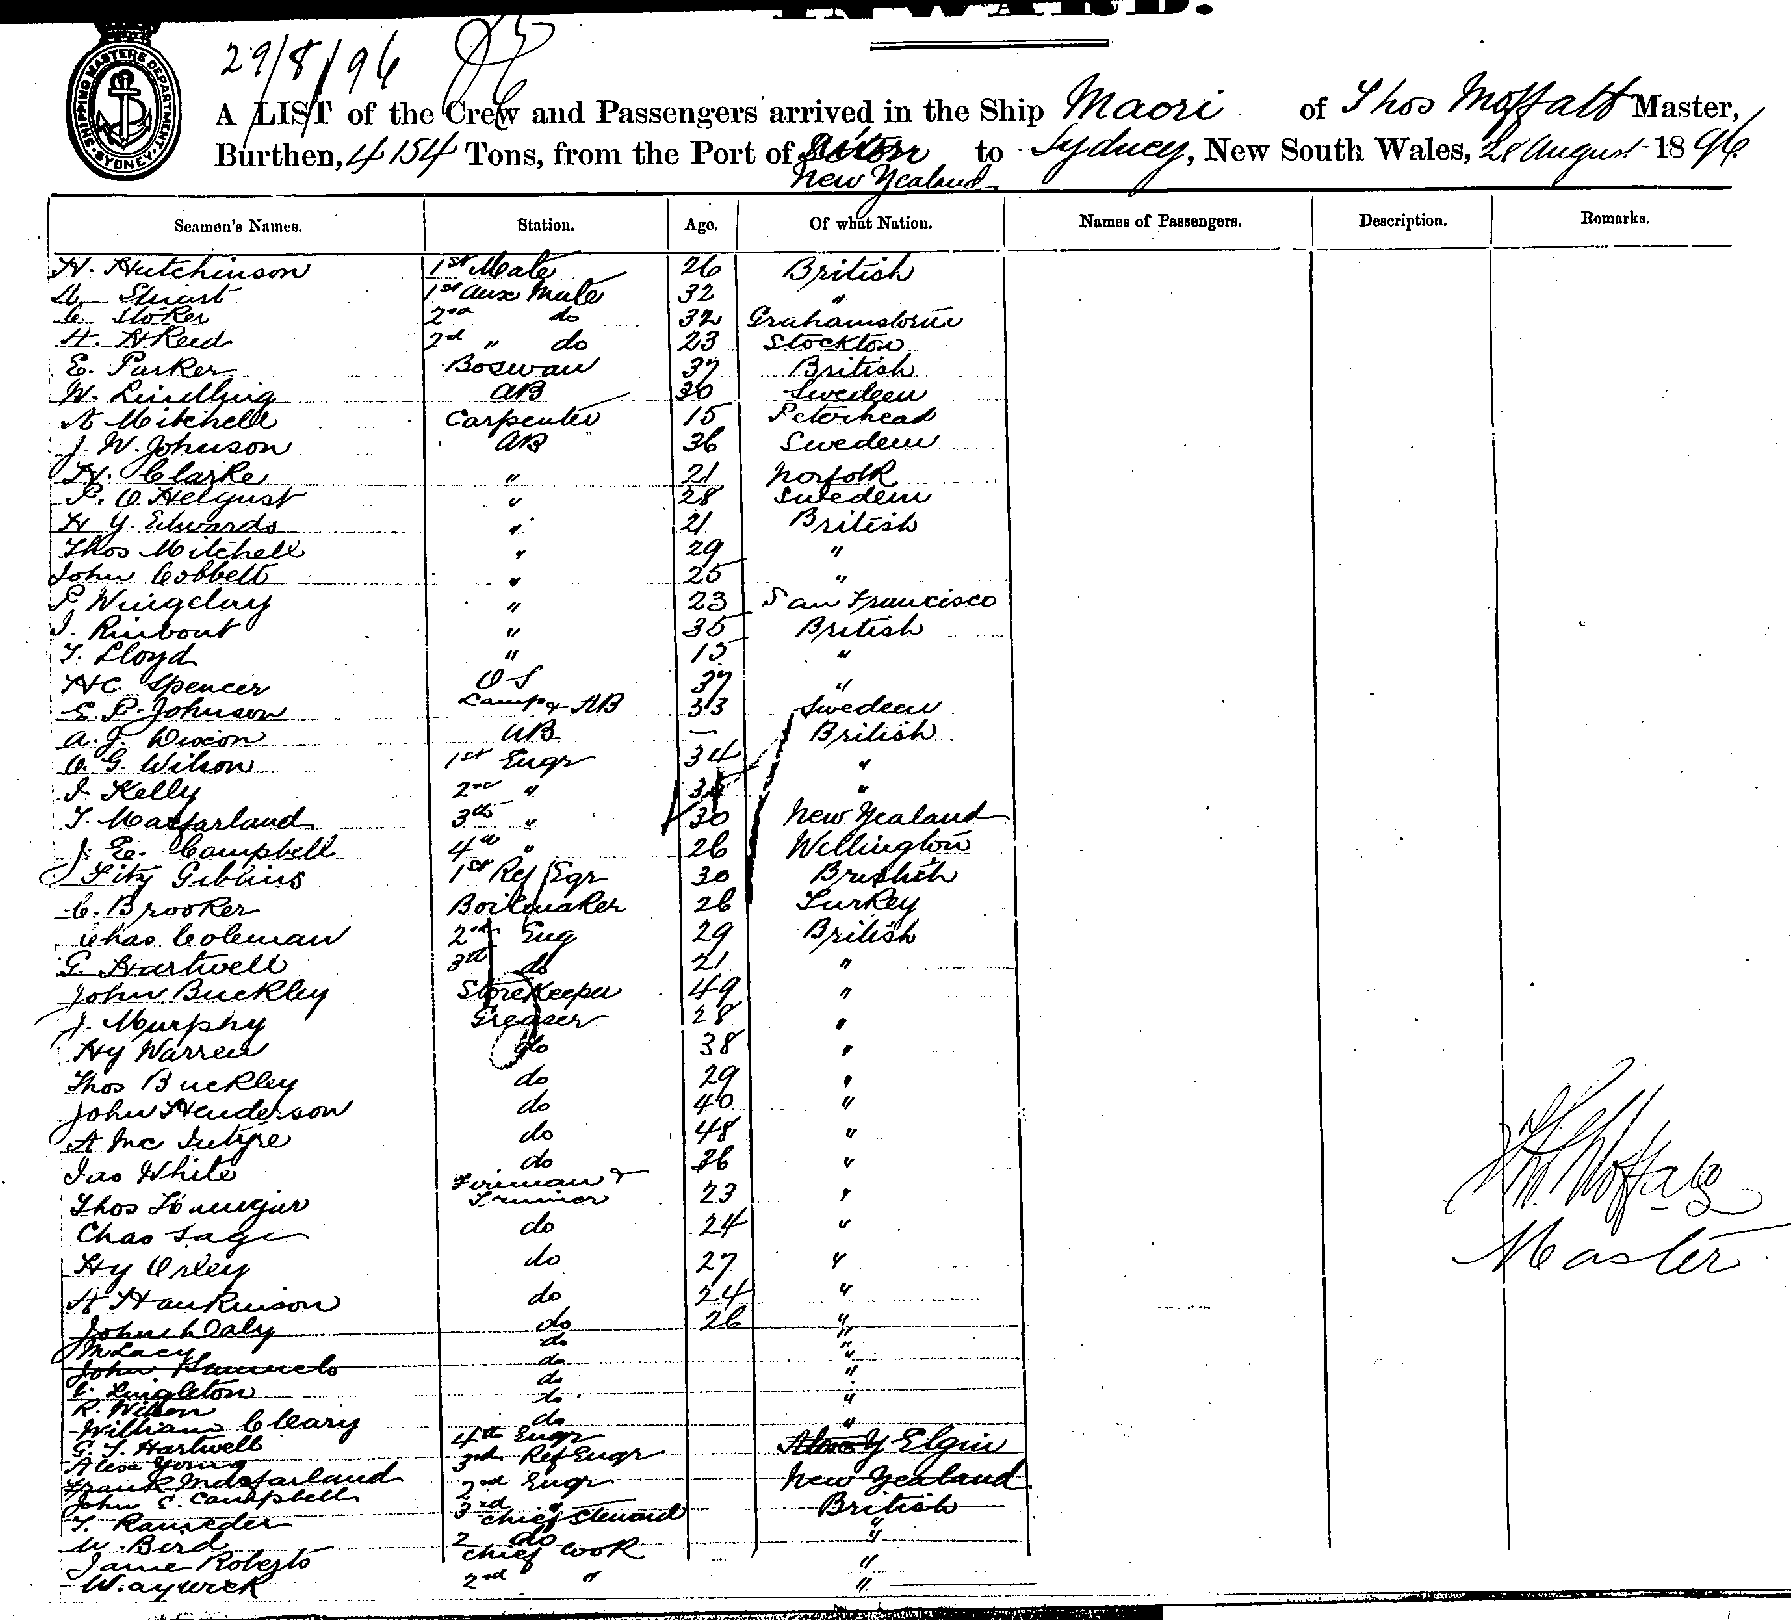 INWARD.
29/8/96
SHIPPING MASTERS DEPARTMENT SYDNEY
A LIST of the Crew and Passengers arrived in the Ship Maori of Thos Moffatt Master,
Burthen, 4154 Tons, from the Port of to Sydney, New South Wales, 28 August 1896
New Zealand
Seamen's Names. Station. Age. Of what Nation. Names of Passengers. Description. Remarks.
H. Hutchinson 1st Mate 26 British
Stuart 1st Aux Mate 32 "
C. Stoker 2nd do 32 Grahamstown
H. H Reed 2nd " do 23 Stockton
E. Parker Boswan 37 British
W. AB 30 Sweden
A Mitchell Carpenter 15 Peterhead
J. W. Johnson AB 36 Sweden
H. Clarke " 21 Norfolk
P. O Helgust " 28 Sweden
H Y. Edwards " 21 British
Thos Mitchell " 29 "
John Cobbett " 25 "
P. Wingclay " 23 San Francisco
J. Rinbout " 35 British
T. Lloyd " 15 "
HC Spencer O S 37 "
E. P. Johnson Lamps & AB 33 Sweden
A. J. Dixon AB — British
O. G. Wilson 1st Engr 34 "
J. Kelly 2nd " "
T. Macfarland 3th " 30 New Zealand
J. E. Campbell 4th " 26 Wellington
Fitz Gibbins 1st Ref Egr 30 British
C. Brooker Boilmaker 26 Turkey
Chas Coleman 2nd Eng 29 British
G. Hartwell 3th do 21 "
John Buckley Storekeeper 49 "
J. Murphy Greaser 28 "
Hy Warren do 38 "
Thos Buckley do 29 "
John Henderson do 40 "
A Mc Intyre do 48 "
Jas White do 36 "
Thos Fireman & Trimmer 23 "
Chas Sage do 24 "
Hy Orley do 27 "
A Hankinson do 24 "
John Daly do 26 "
M Lacy do "
John do "
C. Singleton do "
R. Wilson do "
William Cleary do "
G. T. Hartwell 4th Engr
Alex Young 3rd Ref Engr Elgin
Frank Macfarland 2nd Engr New Zealand
John E Campbell 3rd " British
T. Ransceder Chief Steward "
W. Bird 2 do "
Jame Roberts Chief Cook "
W. aywick 2nd " "
Thos Moffatt
Master